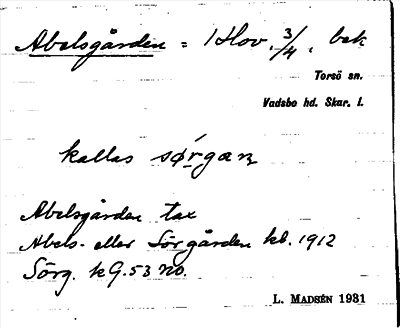 Abelsgården = 1 Hov. 3/4. bek
Torsö sn.
Vadsbo hd. Skar. l.
kallas sørgaɲ
Abelsgården tax
Abels- eller Sörgården kb. 1912
Sörg. kG. 53 no.
L. MADSÉN 1931